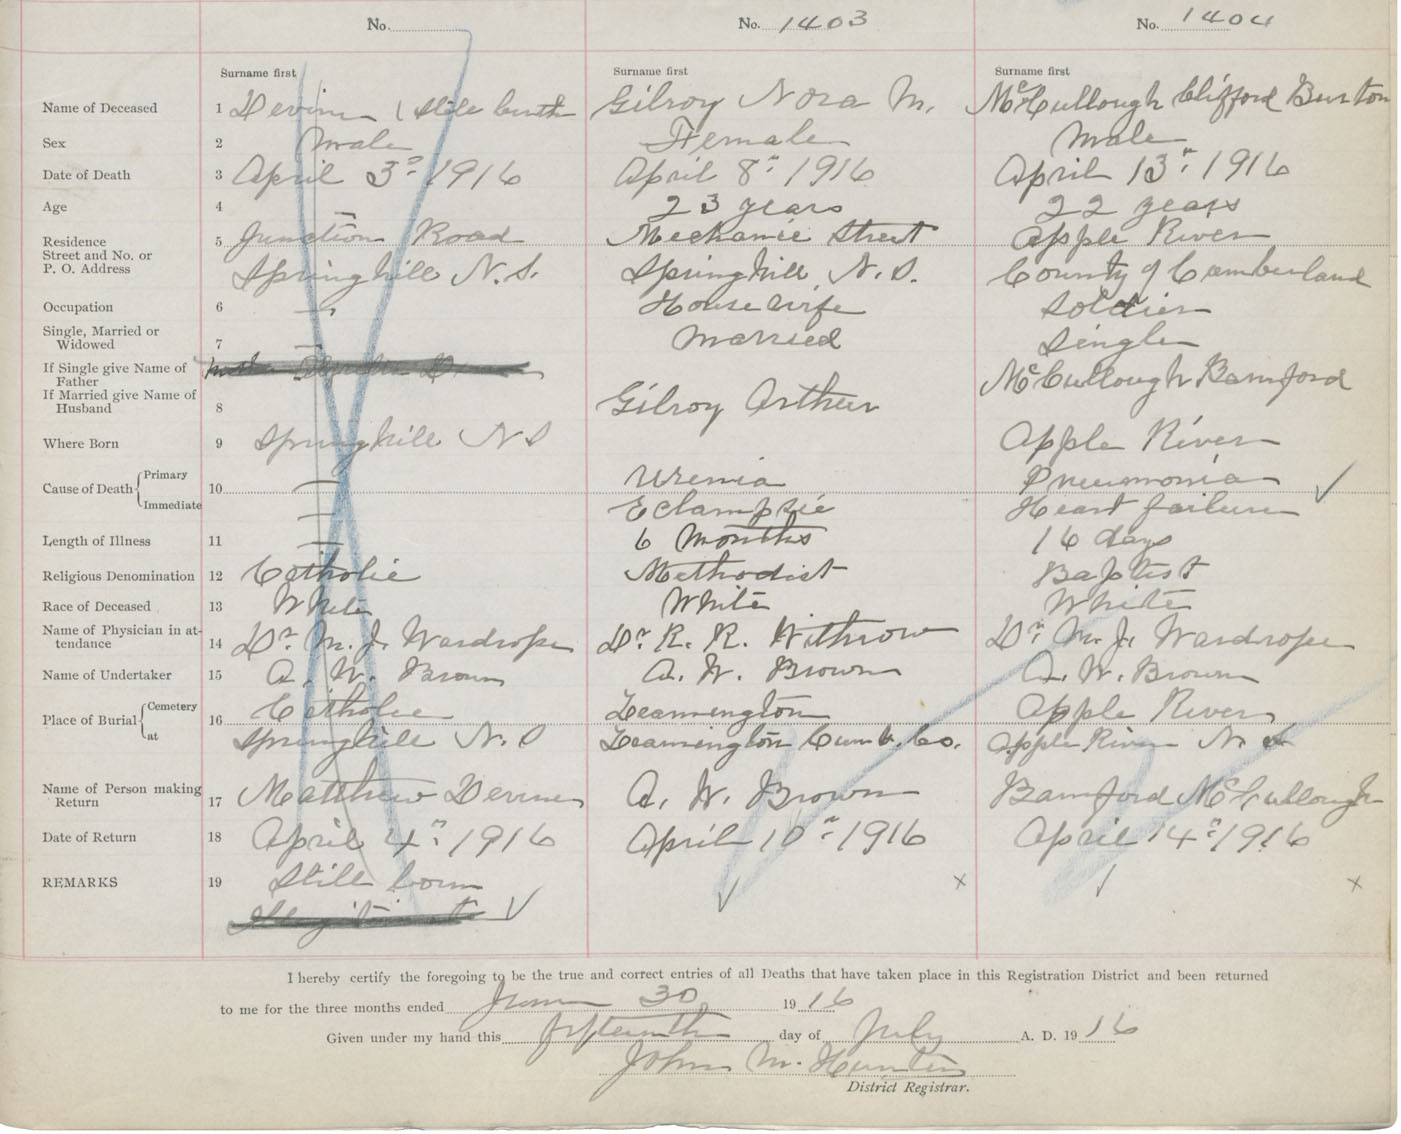 No. No. 1403 No. 1404
Surname first Surname first Surname first
Name of Deceased 1 Devine (Still birth Gilroy Nora M. McCullough Clifford Burton
Sex 2 Male Female Male
Date of Death 3 April 3rd 1916 April 8th 1916 April 13th 1916
Age 4 — 23 years 22 years
Residence 5 Junction Road Mechanic Street Apple River
Street and No. or
P. O. Address Springhill N.S. Springhill N.S. County of Cumberland
Occupation 6 — House wife Soldier
Single, Married or
Widowed 7 — Married Single
If Single give Name of
Father McCullough Bamford
If Married give Name of
Husband 8 Gilroy Arthur
Where Born 9 Springhill N S Apple River
Cause of Death Primary 10 — Uremia Pneumonia
Immediate — Eclampsie Heart failure
Length of Illness 11 — 6 months 16 days
Religious Denomination 12 Catholic Methodist Baptist
Race of Deceased 13 White White White
Name of Physician in at-
tendance 14 Dr. M. J. Wardrope Dr. R. R. Withrow Dr. M. J. Wardrope
Name of Undertaker 15 A. W. Brown A. W. Brown A. W. Brown
Place of Burial Cemetery 16 Catholic Leamington Apple River
at Springhill N.S Leamington Cumb. Co. Apple River N.S
Name of Person making
Return 17 Matthew Devine A. W. Brown Bamford McCullough
Date of Return 18 April 4th 1916 April 10th 1916 April 14th 1916
REMARKS 19 Still born
I hereby certify the foregoing to be the true and correct entries of all Deaths that have taken place in this Registration District and been returned
to me for the three months ended June 30 1916
Given under my hand this fifteenth day of July A. D. 1916
John M. Hunter
District Registrar.